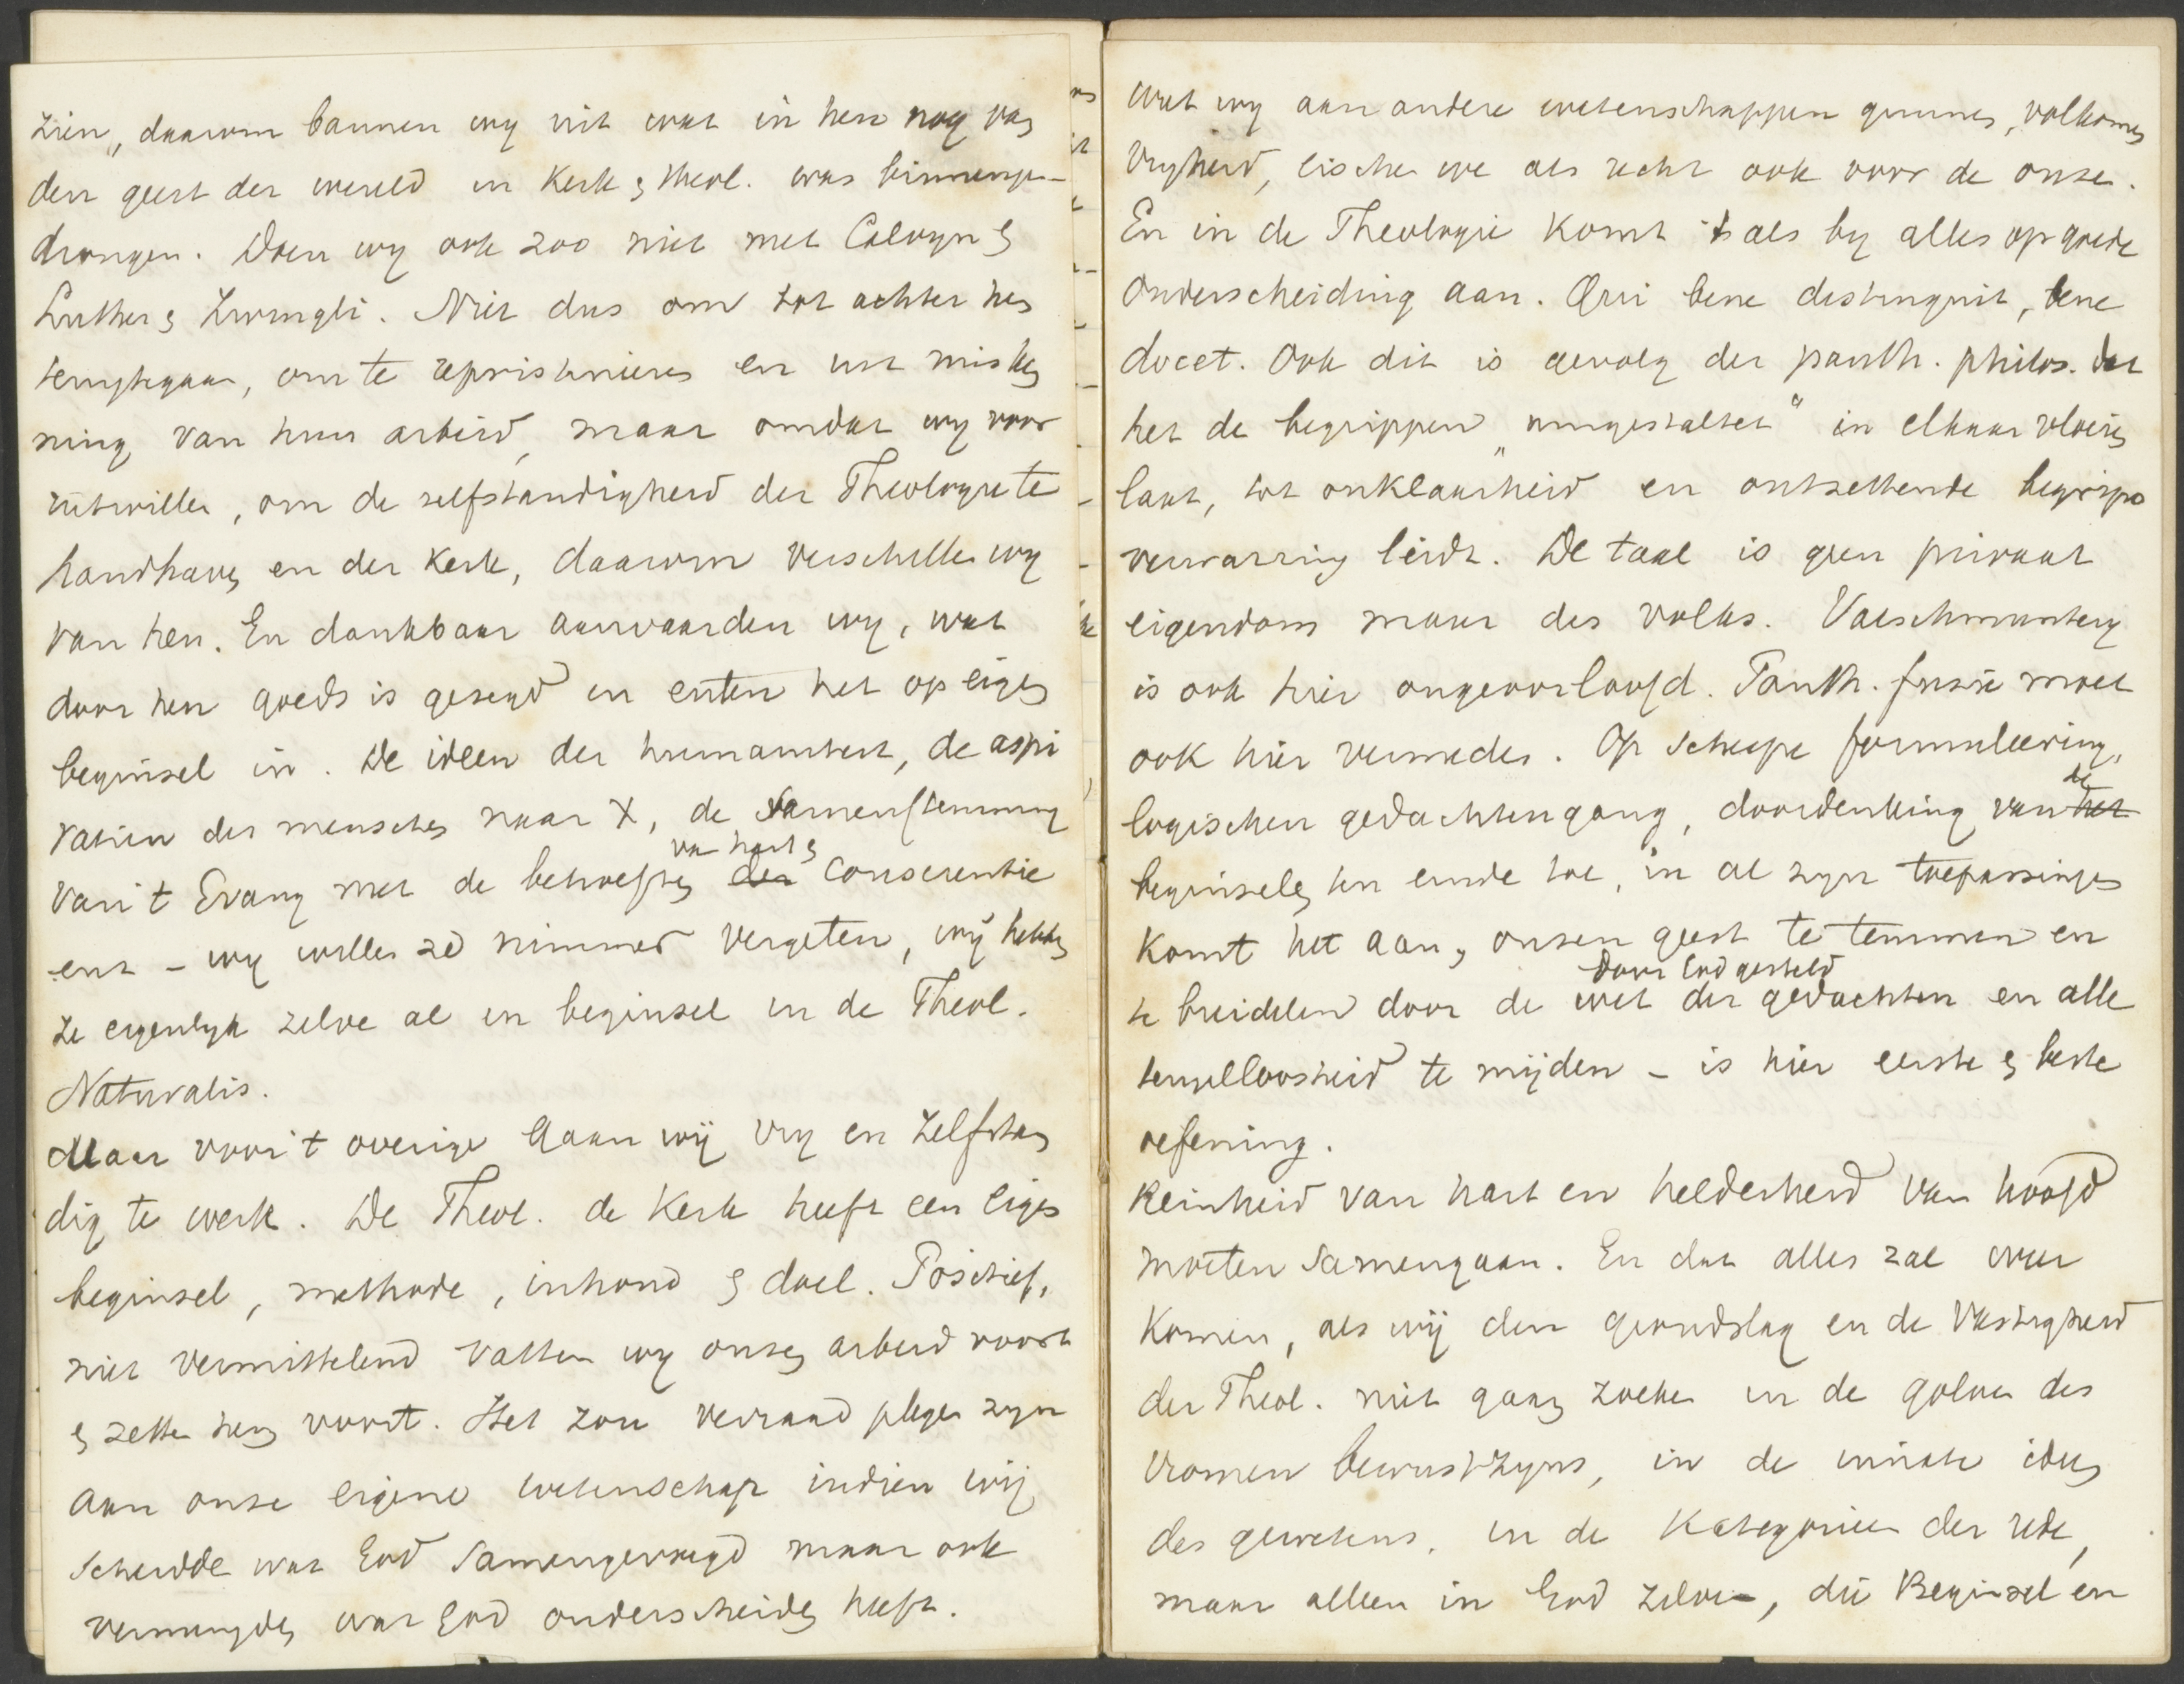 zien, daarom bannen wy uit wat in hen nog van
den geest der wereld in Kerk & theol. was binnenge-
drongen. Doen wy ook zoo niet met Calvyn &
Luther & Zwingli. Niet dus om tot achter hen
terugtegaan, om te repristineren en uit misken
ning van hun arbeid, maar omdat wy voor
uitwillen, om de zelfstandigheid der Theologie te
handhaven en der Kerk, daarom verschillen wy
van hen. En dankbaar aanvaarden wy, wat
door hen goeds is gezegd en enten het op eigen
beginsel in. De ideen der humaniteit, de aspi
ratien des menschen naar X, de Samenstemming
van 't Evang met de behoeften der van hart & conscientie
enz - wy willen ze nimmer vergeten, wij hebben
ze eigenlyk zelve al in beginsel in de Theol.
Naturalis.
Maar voor 't overige gaan wij vry en zelfstan
dig te werk. De Theol. de Kerk heeft een eigen
beginsel, methode, inhoud & doel. Positief,
niet vermittelend vatten wy onzen arbeid voort
& zetten hem voort. Het zou verraad plegen zyn
aan onze eigene wetenschap indien wij
scheidde wat God samengevoegd maar ook
vermengden wat God onderscheiden heeft.
Wat wy aan andere wetenschappen gunnen, volkomen
Vryheid, eischen we als recht ook voor de onze.
En in de Theologie komt 't als by alles op goede
Onderscheiding aan. Qui bene distinguit, bene
docet. Ook dit is gevolg der panth. philos. dat
het de begrippen „umgestaltet" in elkaar vloeien
laat, tot onklaarheid en ontzettende begrips
verwarring leidt. De taal is geen privaat
eigendom maar des volks. Valschmuntery
is ook hier ongeoorloofd. Panth. fusie moet
ook hier vermeden. Op scherpe formuleering,
logischen gedachtengang, doordenking van het de
beginselen ten einde toe, in al zyn toepassingen
komt het aan, onzen geest te temmen en
te breidelen door de door God gesteld wet der gedachten en alle
teugelloosheid te mijden - is hier eerste & beste
oefening.
Reinheid van hart en helderheid van hoofd
moeten samengaan. En dat alles zal over
komen, als wij den grondslag en de Vastigheid
der Theol. niet gaan zoeken in de golven des
vromen bewustzyns, in de
des gewetens, in de Kategorieen der rede,
maar alleen in God zelven, die Beginsel en